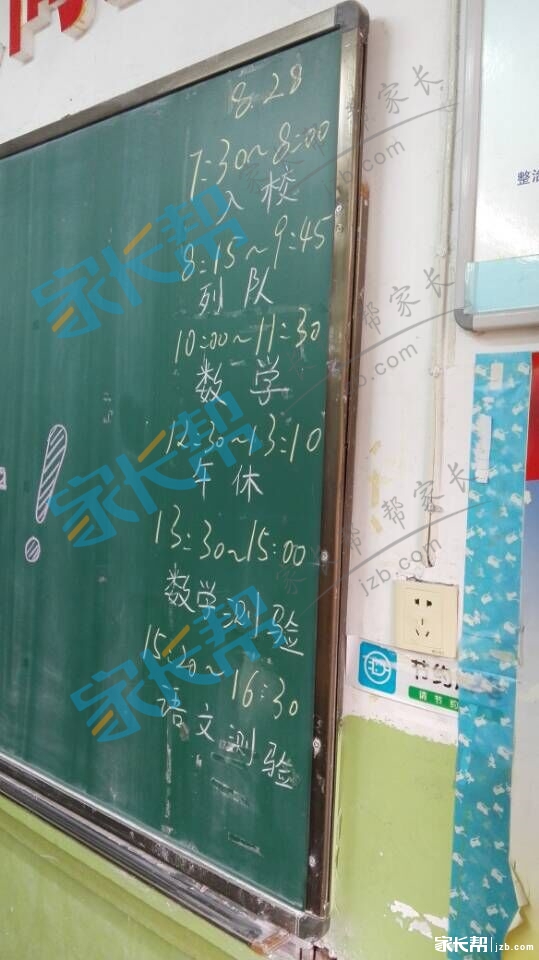 8.28
7:30~8:00
入校
8:15~9:45
列队
10:00~11:30
数学
12:30~13:10
午休
13:30~15:00
数学测验
15:20~
16:30
语文测验
!
整治
节约
请节约
家长帮
jzb.com
家长帮
jzb.com
家长帮
jzb.com
家长帮
家长帮
家长帮
家长帮 jzb.com